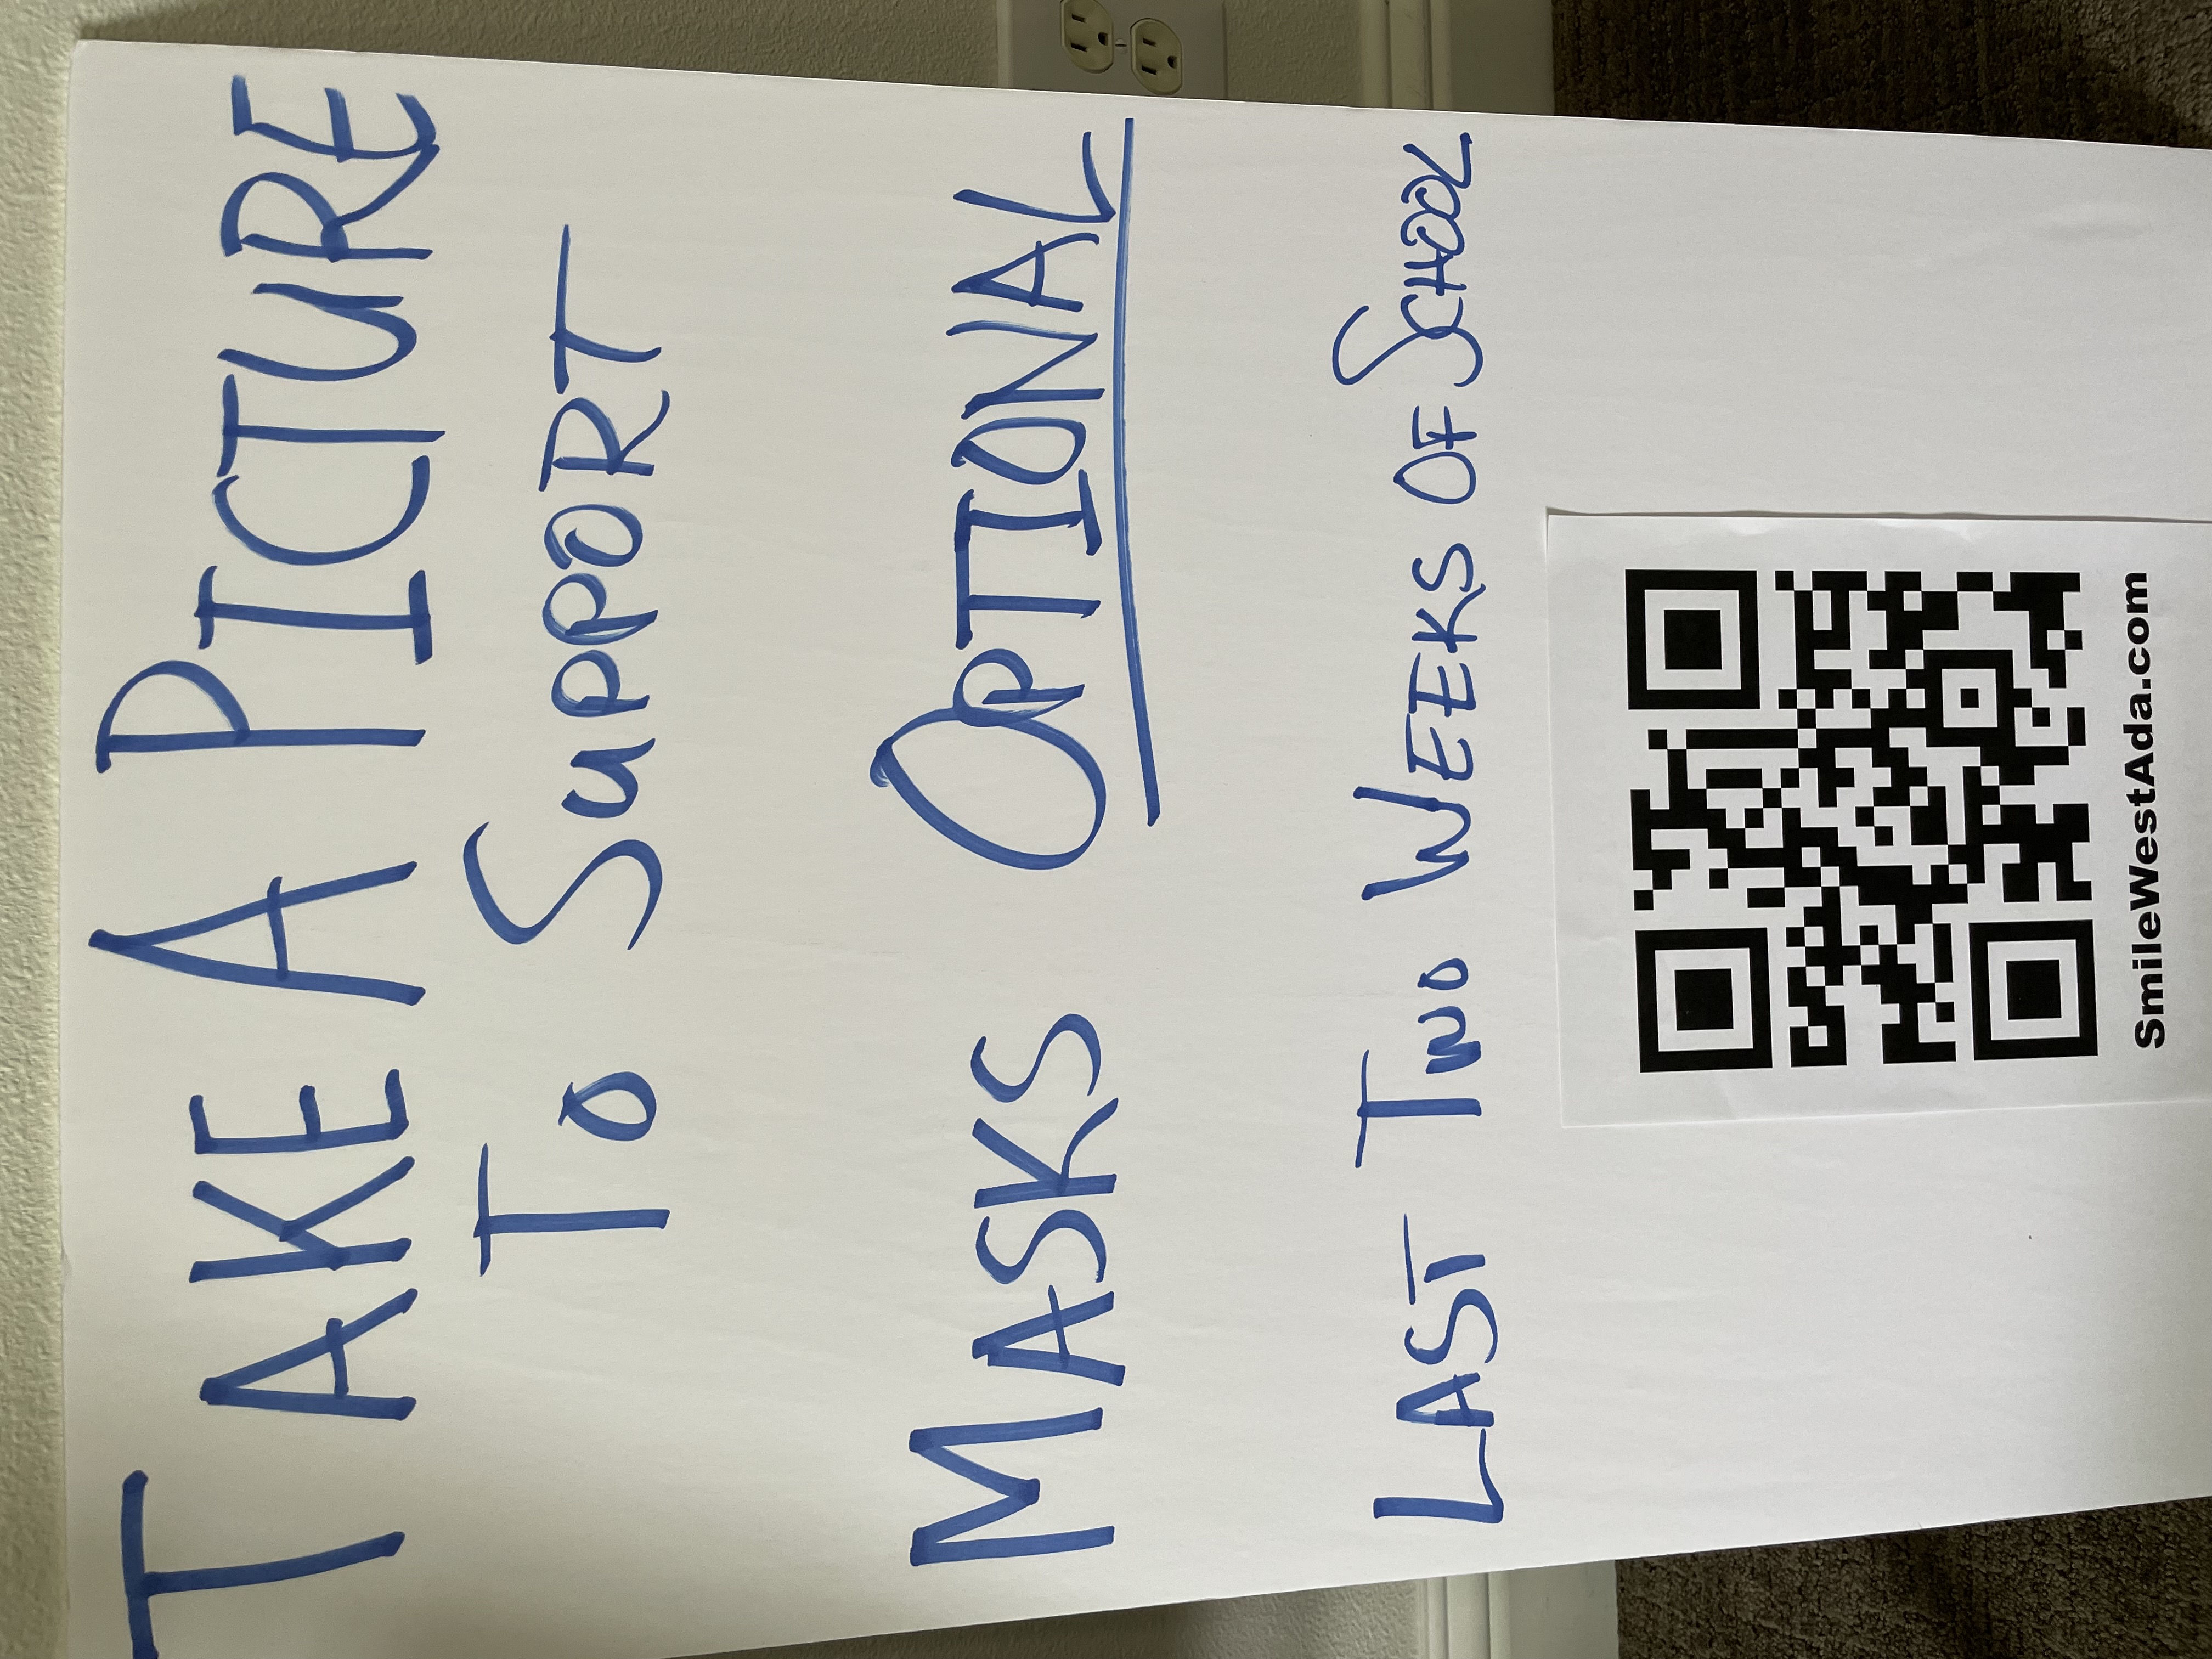 TAKE A PICTURE
TO SUPPORT
MASKS OPTIONAL
LAST TWO WEEKS OF SCHOOL
SmileWestAda.com